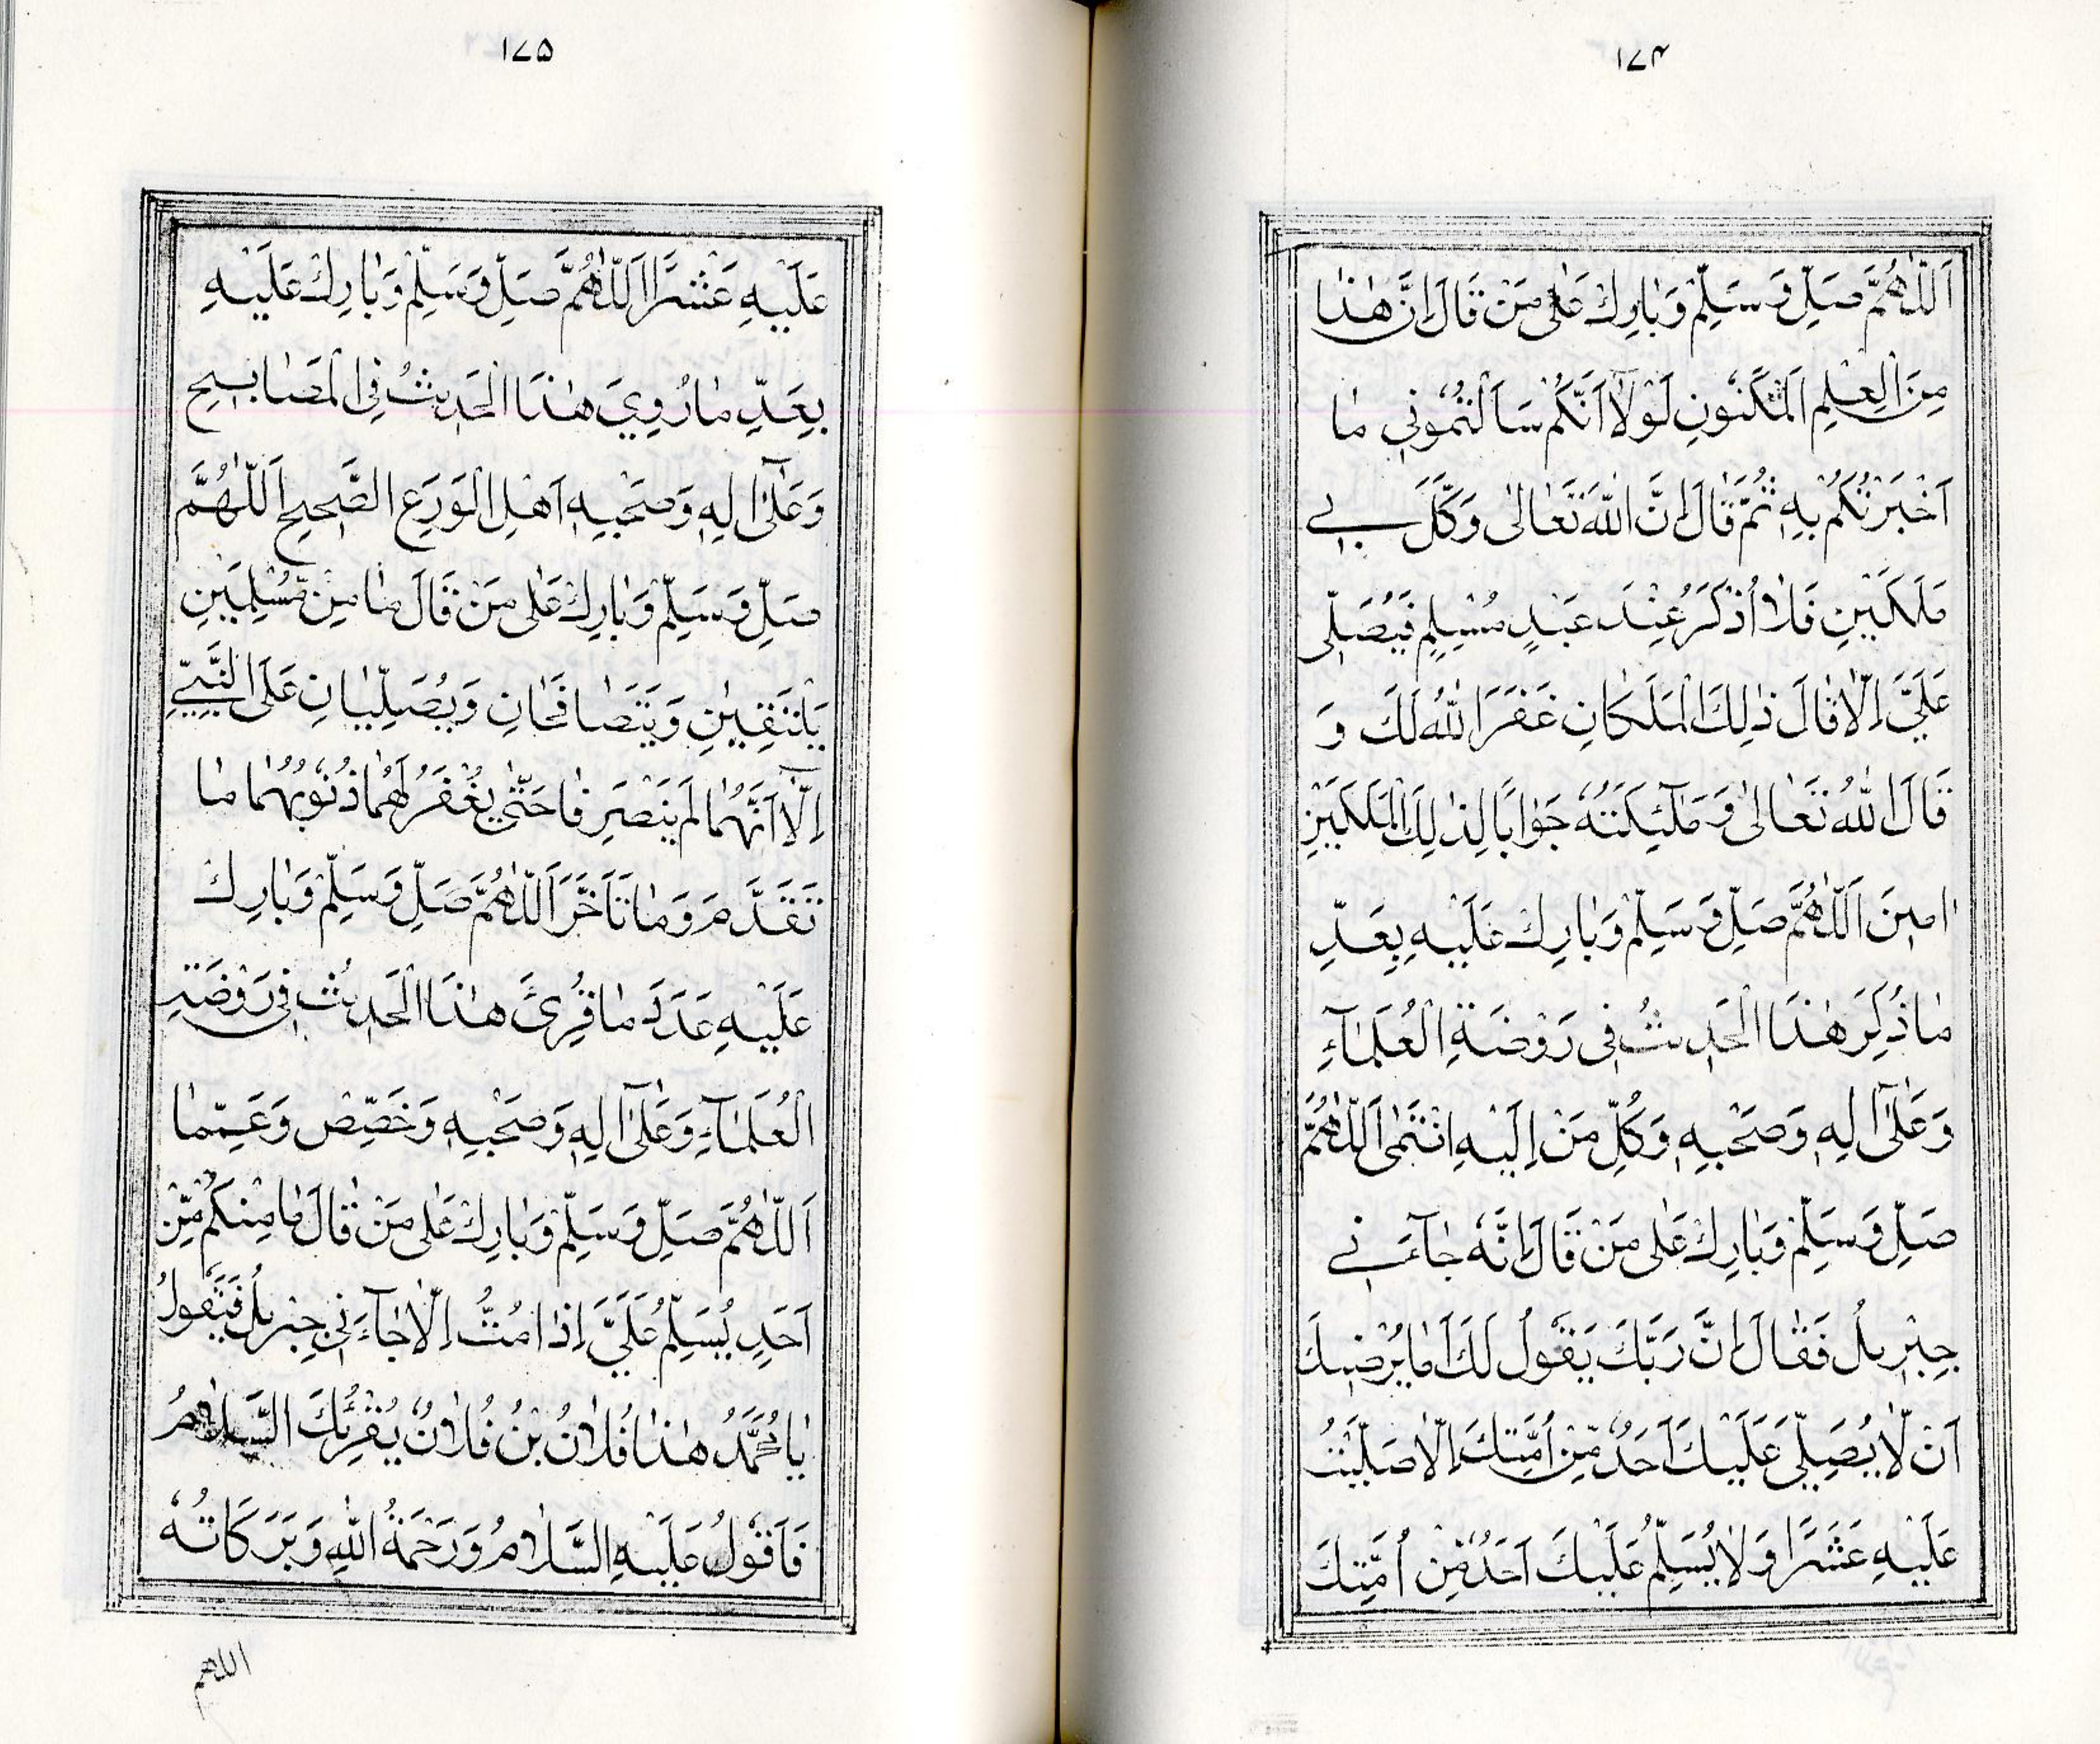 ١٧٤
اَللّٰهُمَّ صَلِّ وَسَلِّمْ وَبَارِكْ عَلٰى مَنْ قَالَ اِنَّ هٰذَا
مِنَ الْعِلْمِ الْمَكْنُونِ لَوْلَا اَنَّكُمْ سَاَلْتُمُونِي مَا
اَخْبَرْتُكُمْ بِهٖ ثُمَّ قَالَ اِنَّ اللّٰهَ تَعَالٰى وَكَّلَ بِي
مَلَكَيْنِ فَلَا اُذْكَرُ عِنْدَ عَبْدٍ مُسْلِمٍ فَيُصَلِّي
عَلَيَّ اِلَّا قَالَ ذٰلِكَ الْمَلَكَانِ غَفَرَ اللّٰهُ لَكَ وَ
قَالَ اللّٰهُ تَعَالٰى وَمَلٰٓئِكَتُهٗ جَوَابًا لِذٰلِكَ الْمَلَكَيْنِ
اٰمِينَ اَللّٰهُمَّ صَلِّ وَسَلِّمْ وَبَارِكْ عَلَيْهِ بِعَدِّ
مَا ذُكِرَ هٰذَا الْحَدِيثُ فِي رَوْضَةِ الْعُلَمَآءِ
وَعَلٰٓى اٰلِهٖ وَصَحْبِهٖ وَكُلِّ مَنْ اِلَيْهِ انْتَمٰى اَللّٰهُمَّ
صَلِّ وَسَلِّمْ وَبَارِكْ عَلٰى مَنْ قَالَ اِنَّهٗ جَآءَنِي
جِبْرِيلُ فَقَالَ اِنَّ رَبَّكَ يَقُولُ لَكَ اَمَا يُرْضِيكَ
اَنْ لَّا يُصَلِّيَ عَلَيْكَ اَحَدٌ مِّنْ اُمَّتِكَ اِلَّا صَلَّيْتُ
عَلَيْهِ عَشْرًا وَلَا يُسَلِّمُ عَلَيْكَ اَحَدٌ مِّنْ اُمَّتِكَ
١٧٥
عَلَيْهِ عَشْرًا اَللّٰهُمَّ صَلِّ وَسَلِّمْ وَبَارِكْ عَلَيْهِ
بِعَدِّ مَا رُوِيَ هٰذَا الْحَدِيثُ فِي الْمَصَابِيحِ
وَعَلٰٓى اٰلِهٖ وَصَحْبِهٖ اَهْلِ الْوَرَعِ الصَّحِيحِ اَللّٰهُمَّ
صَلِّ وَسَلِّمْ وَبَارِكْ عَلٰى مَنْ قَالَ مَا مِنْ مُّسْلِمَيْنِ
يَلْتَقِيَانِ وَيَتَصَافَحَانِ وَيُصَلِّيَانِ عَلَى النَّبِيِّ
اِلَّا اَنَّهُمَا لَمْ يَنْصَرِفَا حَتّٰى يُغْفَرَ لَهُمَا ذُنُوبُهُمَا مَا
تَقَدَّمَ وَمَا تَاَخَّرَ اَللّٰهُمَّ صَلِّ وَسَلِّمْ وَبَارِكْ
عَلَيْهِ عَدَدَ مَا قُرِئَ هٰذَا الْحَدِيثُ فِي رَوْضَةِ
الْعُلَمَآءِ وَعَلٰٓى اٰلِهٖ وَصَحْبِهٖ وَخَصِّصْ وَعَمِّمَا
اَللّٰهُمَّ صَلِّ وَسَلِّمْ وَبَارِكْ عَلٰى مَنْ قَالَ مَا مِنْكُمْ مِّنْ
اَحَدٍ يُسَلِّمُ عَلَيَّ اِذَا مُتُّ اِلَّا جَآءَنِي جِبْرِيلُ فَيَقُولُ
يَا مُحَمَّدُ هٰذَا فُلَانُ بْنُ فُلَانٍ يُقْرِئُكَ السَّلَامُ
فَاَقُولُ عَلَيْهِ السَّلَامُ وَرَحْمَةُ اللّٰهِ وَبَرَكَاتُهٗ
اللهم